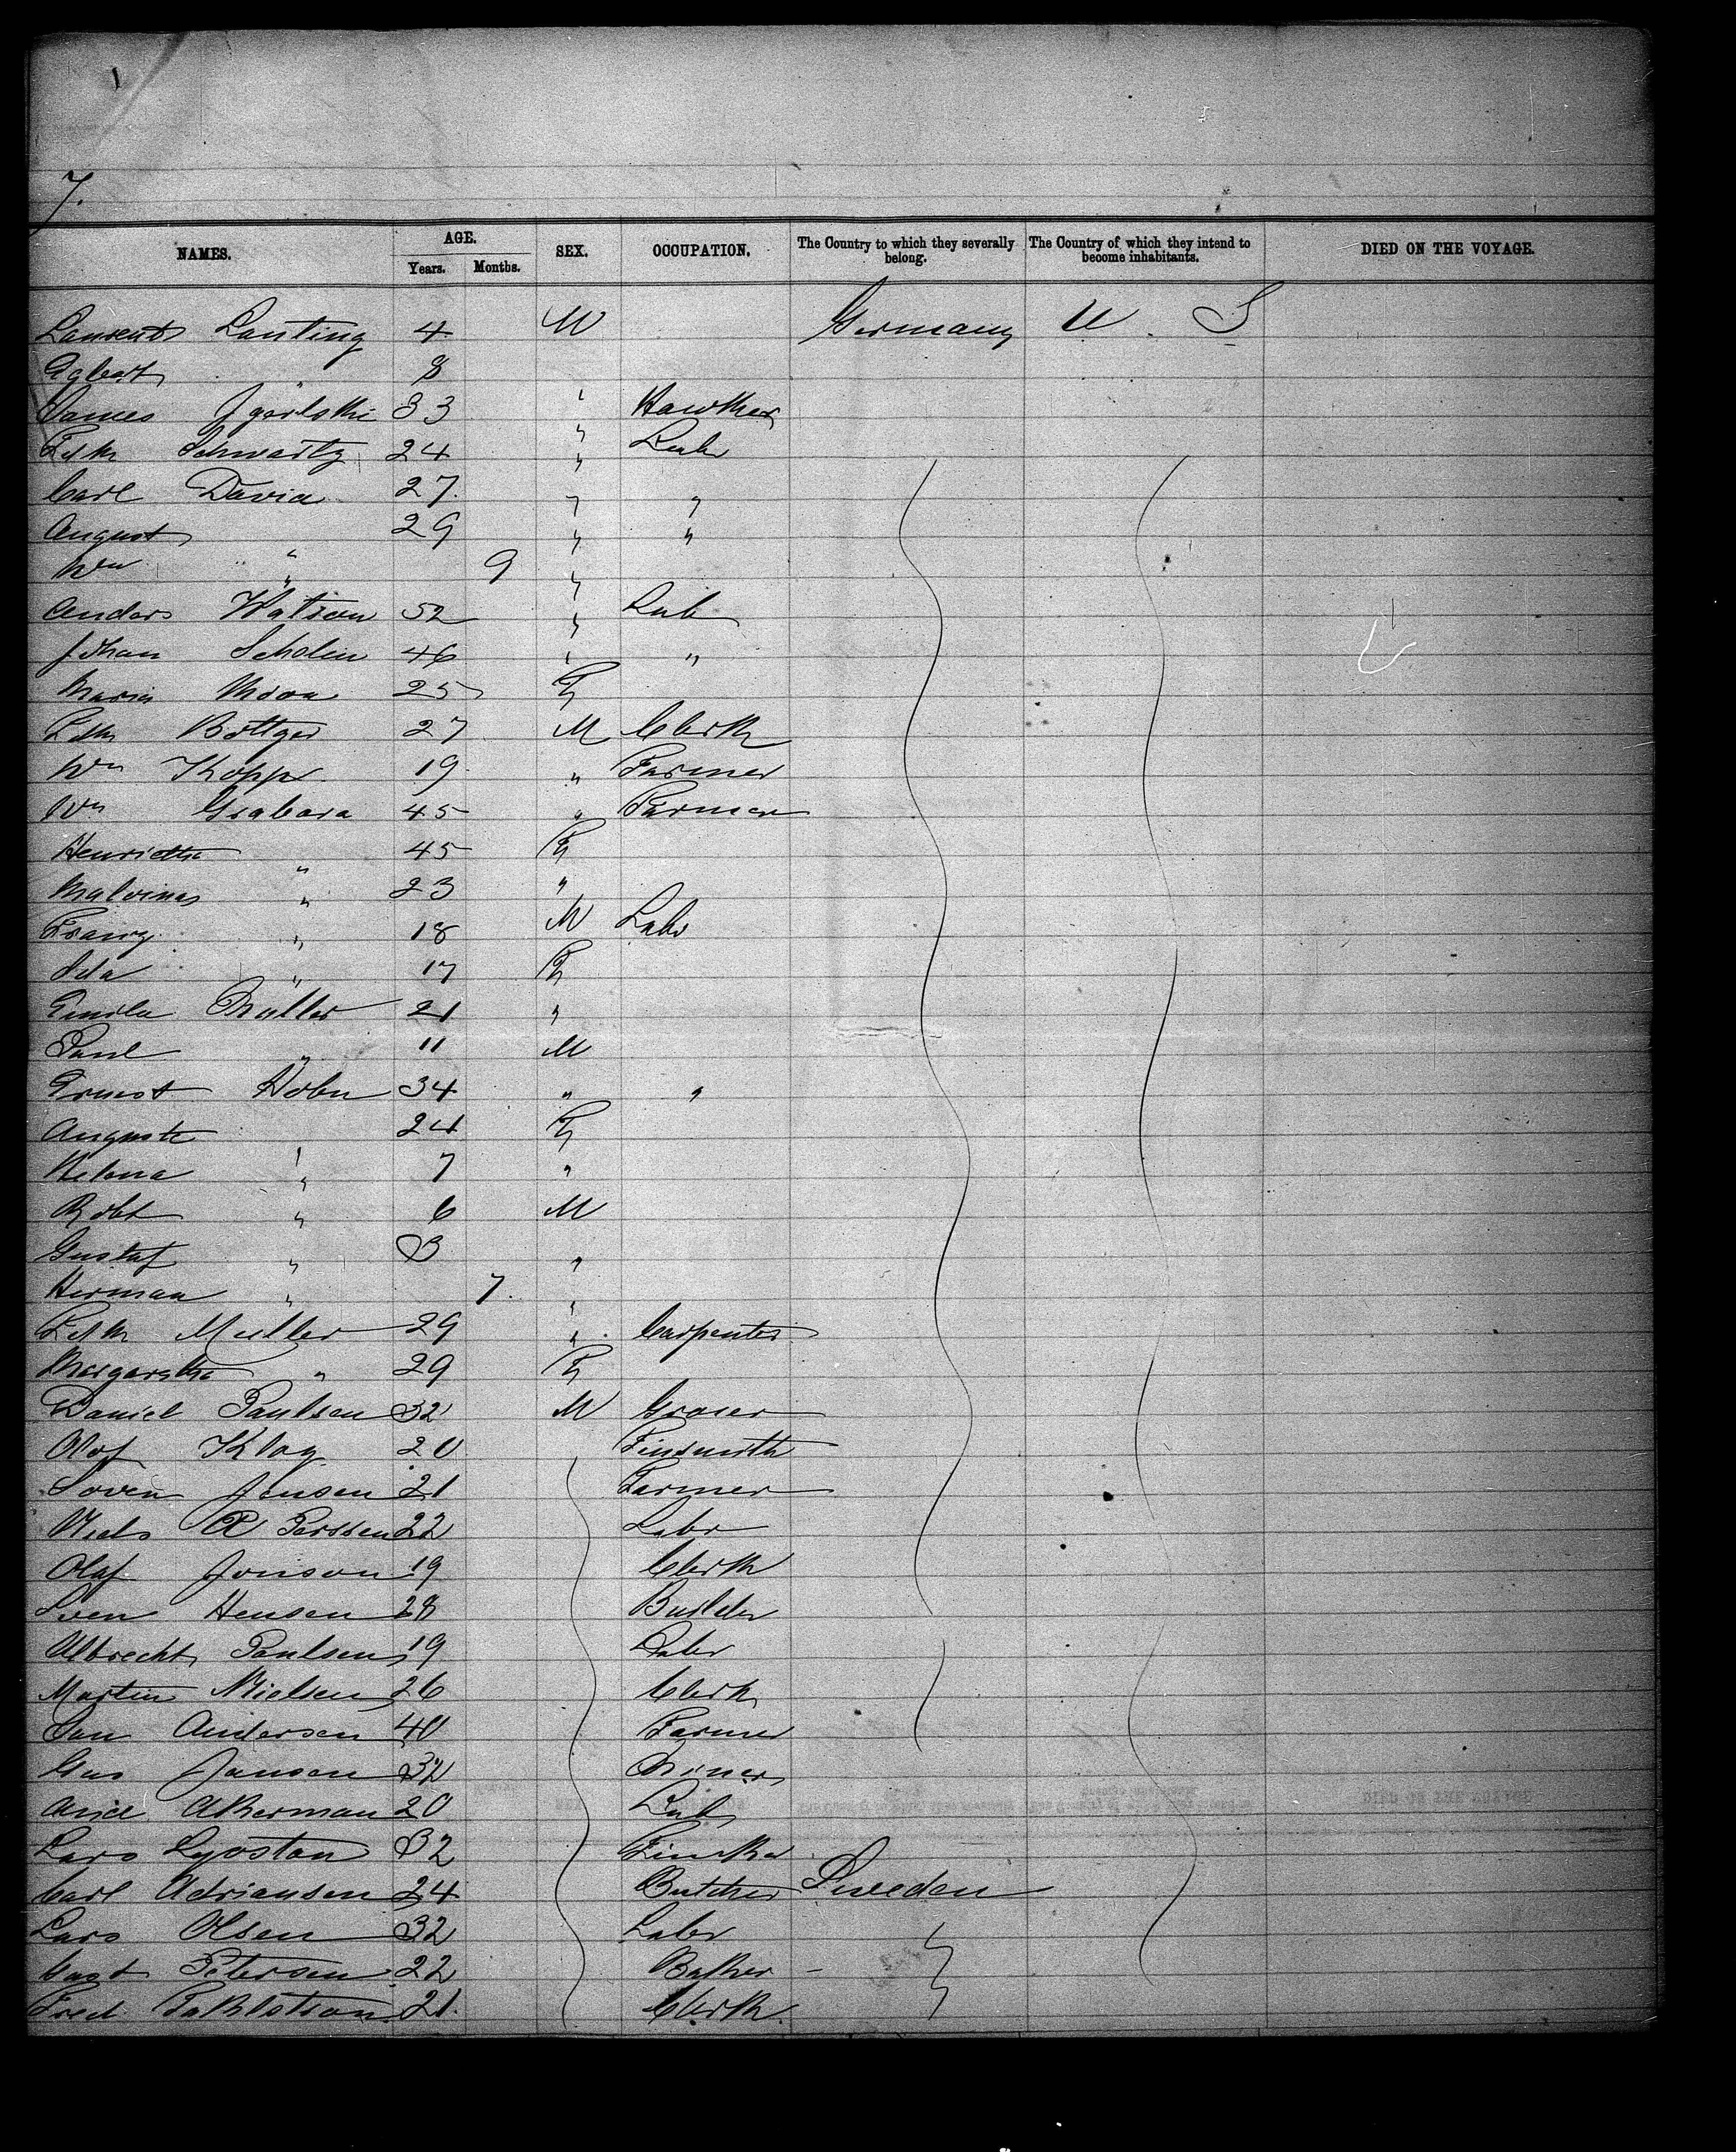 7.
NAMES. AGE. Years. Months. SEX. OCCUPATION. The Country to which they severally belong. The Country of which they intend to become inhabitants. DIED ON THE VOYAGE.
Lanting 4 M Germany U. S
Egbert " 8
James 33 " Hawker
Fdk Schwartz 24 " Labr
Carl David 27 " "
August " 29 " "
Wm " 9 "
Anders Watson 52 " Lab
Johan Scholin 46 " "
Maria 25 F
Fdk Bottger 27 M Clerk
Wm Kopp 19 " Farmer
Wm Grabara 45 " Farmer
Henrietta " 45 F
Malvina " 23 "
Franz " 18 M Labr
Ida " 17 F
Emila Muller 21 "
Paul " 11 M
Ernest Hohn 34 " "
Auguste " 24 F
Helena " 7 "
Robt " 6 M
Gustaf " 3 "
Herman " 7 "
Fdk Muller 29 " Carpenter
Margaretha " 29 F
Daniel Paulsen 32 M Grocer
Olof Klog 20 Tinsmith
Soven Jensen 21 Farmer
Niels P Perssen 22 Labr
Olaf Jonson 19 Clerk
Sven Hensen 28 Builder
Albrecht Paulsen 19 Labr
Martin Nielsen 26 Clerk
Jan Andersen 40 Farmer
Gus Jansen 32 Miner
Akerman 20 Lab
Lars 32 Tinker
Carl Adriansen 24 Butcher Sweden
Lars Olsen 32 Labr "
Gust Petersen 22 Baker "
Fred 21 Clerk "